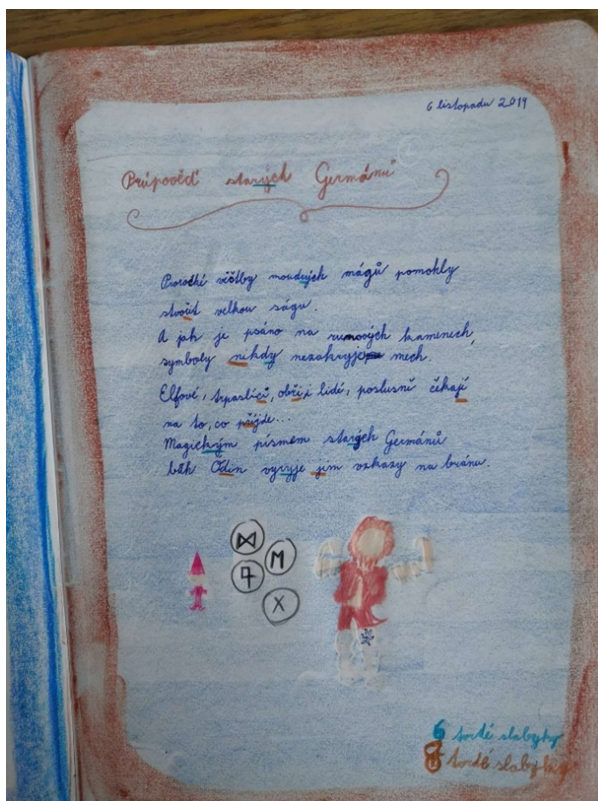 6 listopadu 2019
Průpověď starých Germánů
Prorocké věštby moudrých mágů pomohly
stvořit velkou ságu.
A jak je psáno na runových kamenech,
symboly nikdy nezakryje mech.
Elfové, trpaslíci, obři i lidé, poslusně čekají
na to, co přijde...
Magickým písmem starých Germánů
bůh Odin vyryje jim vzkazy na bránu.
6 tvrdé slabyky
8 tvrdé slabyky